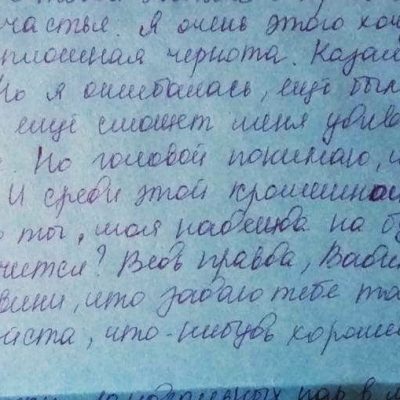 счастья. Я очень этого хоч
сплошная чернота. Казал
Но я ошибалась, ещё был
ещё сможет меня убив
. Но головой понимаю, ч
И среди этой крошешной
ты, моя надежда на бу
чится? Ведь правда, Бабу
вини, что задаю тебе та
части, что-нибудь хороше